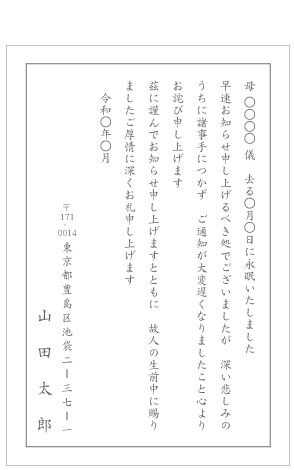 母 〇〇〇〇 儀 去る〇月〇日に永眠いたしました
早速お知らせ申し上げるべき処でございましたが 深い悲しみの
うちに諸事手につかず ご通知が大変遅くなりましたこと心より
お詫び申し上げます
茲に謹んでお知らせ申し上げますとともに 故人の生前中に賜り
ましたご厚情に深くお礼申し上げます
令和〇年〇月
〒171-0014 東京都豊島区池袋二ー三七ー一
山田太郎